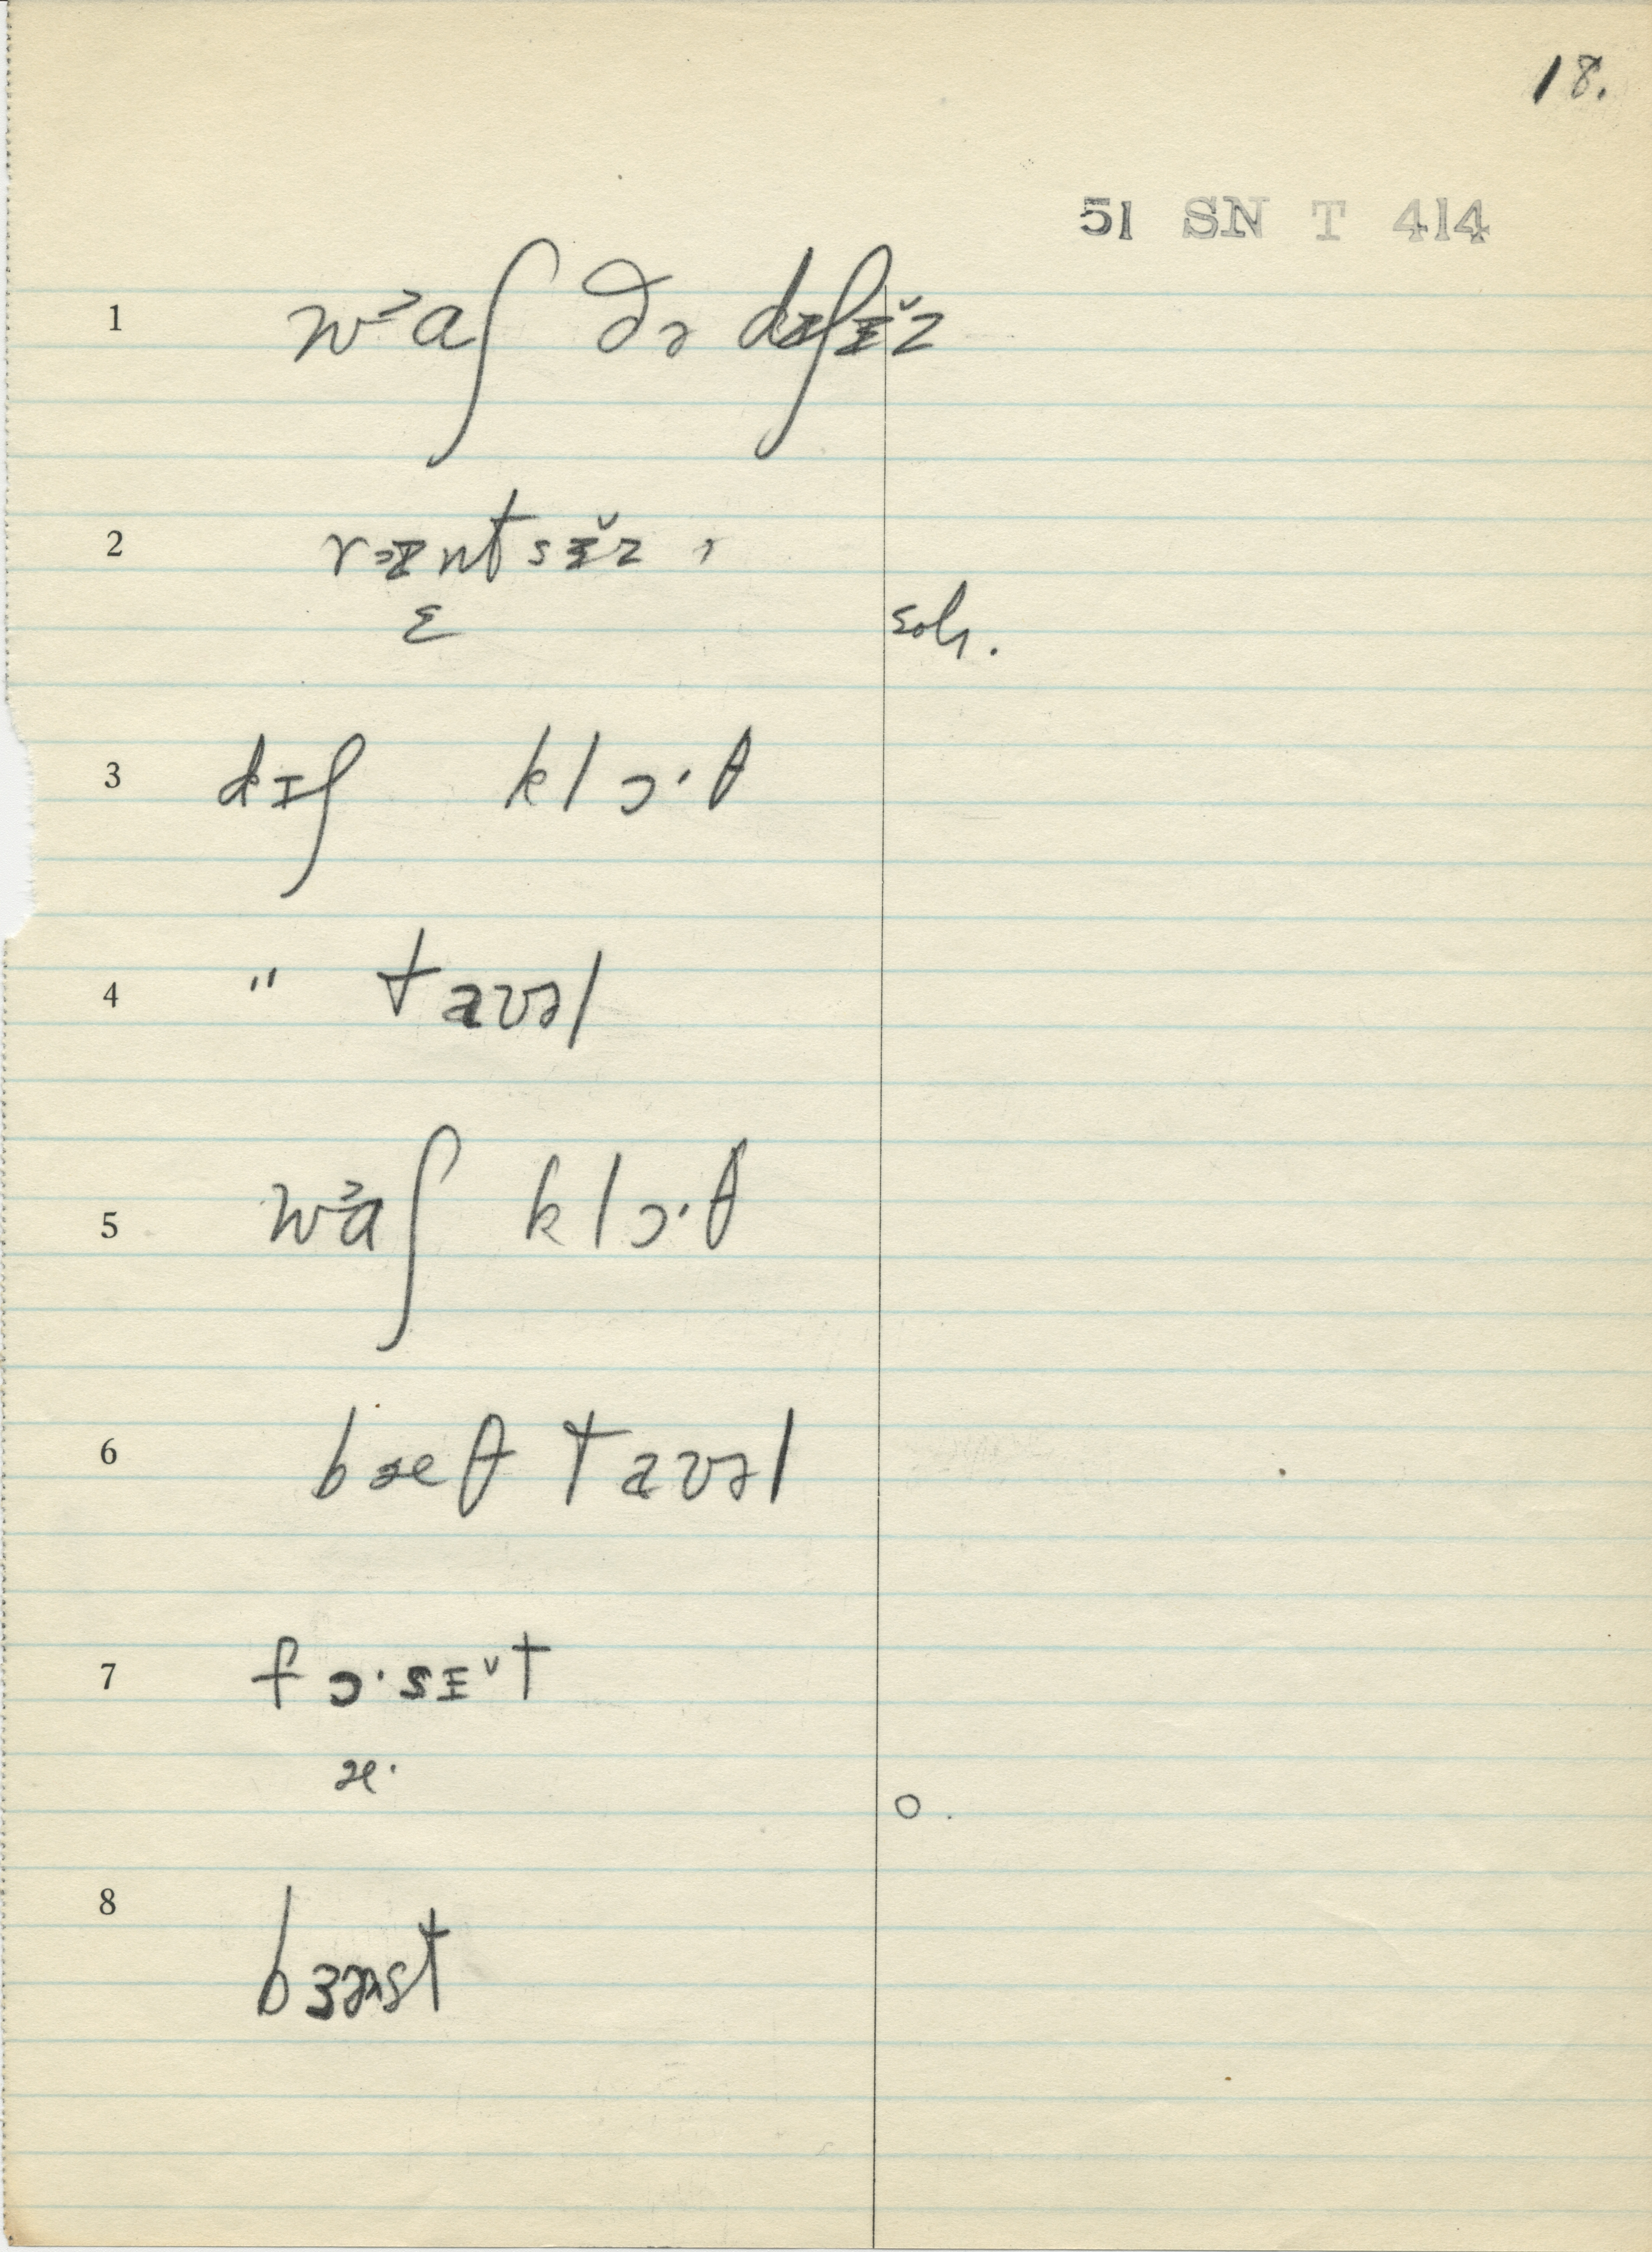 18.
51 SN T 414
1 wɔaʃ ðə dɪʃɪ̌z
2 rɪntsɪ̌z ,
ɛ
3 dɪʃ klɔ·θ
4 " taʊəl
5 wɔaʃ klɔ·θ
6 bæθ taʊəl
7 fɔ·sɪ̌t
æ·
o.
8 bɜəst